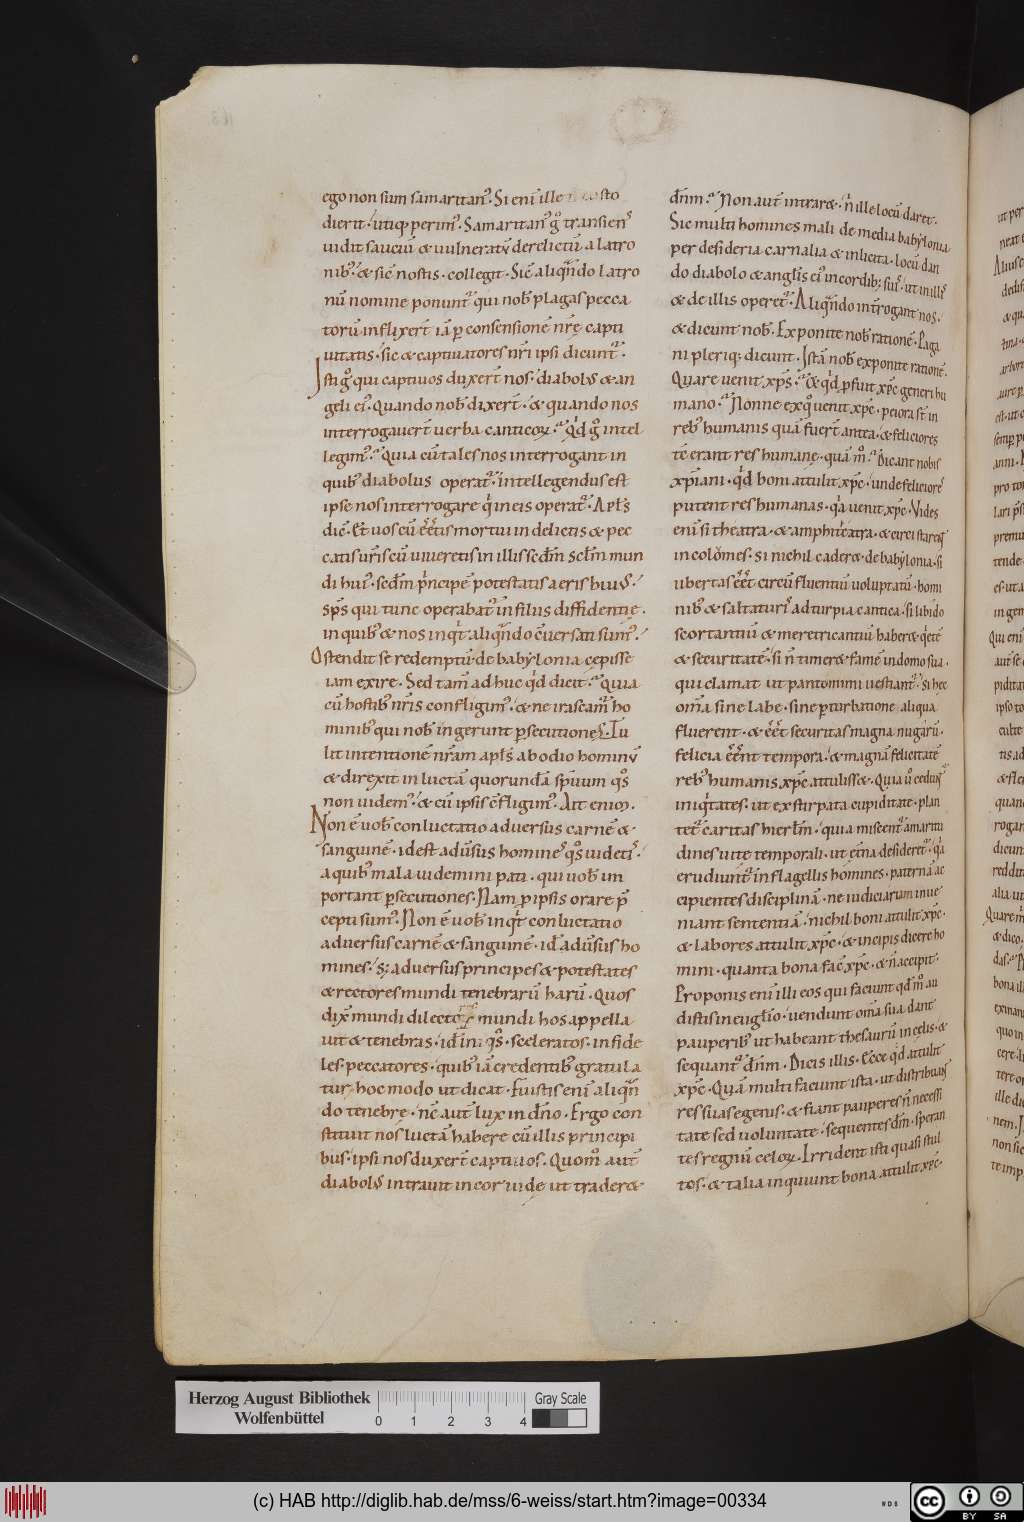 ego non sum samaritan᷒. Si eni̅ ille
dierit. utiq; perim᷒. Samaritan᷒ g̊ transien᷒
uidit sauciu̅ & uulneratu̅ derelictu̅ a latro
nib᷒. & sic̅ nostis. collegit. Sic̅ aliqn̅do latro
nu̅ nomine ponunt᷒ qui nob̅ plagas pecca
toru̅ inflixer̅t ia̅ p̱ consensione̅ nr̅e̜ capti
uitatis. sic & captiuatores nr̅i ipsi dicunt᷒.
Isti g̊ qui captiuos duxer̅t nos. diabol᷒ & an
geli ei᷒. Quando nob̅ dixer̅t. & quando nos
interrogauer̅t uerba canticoꝝ. Qd̅ g̊ intel
legim᷒. Quia cu̅ tales nos interrogant in
quib᷒ diabolus operat᷒. intellegendus est
ipse nos interrogare qͥ in eis operat᷒. Apl̅s
dic̅. Et uos cu̅ ee̅tis mortui in delictis & pec
catis ur̅is cu̅ uiueretis in illis scd̅m scl̅m mun
di hui᷒. scd̅m pͥncipe̅ potestatis aeris hui᷒.
sps̅ qui tunc operabat᷒ in filiis diffidentie̜.
in quib᷒ & nos inqͥt aliqn̅do c̅uersati sum᷒.
Ostendit se redemptu̅ de babylonia cepisse
iam exire. Sed tam̅ ad huc qd̅ dicit. Quia
cu̅ hostib᷒ nr̅is confligim᷒. & ne irascam᷒ ho
minib᷒ qui nob̅ ingerunt p̱secutiones. Tu
lit intentione̅ nr̅am apl̅s ab odio hominu̅
& direxit in lucta̅ quorunda̅ sp̅uum q̊s
non uidem᷒. & cu̅ ipsis c̅fligim᷒. Ait enim.
Non e̅ uob̅ conluctatio aduersus carne̅ &
sanguine̅. id est adu̅sus homine᷒ q̊s uideti᷒.
a quib᷒ mala uidemini pati. qui uob̅ im
portant p̱secutiones. Nam p̱ ipsis orare p̅
cepti sum᷒. Non e̅ uob̅ inqͥt conluctatio
aduersus carne̅ & sanguine̅. id̅ adu̅sus ho
mines. s; aduersus principes & potestates
& rectores mundi tenebraru̅ haru̅. Quos
dix̅ mundi dilectores mundi hos appella
uit & tenebras. id̅ iniq̊s. sceleratos. infide
les. peccatores. quib᷒ ia̅ credentib᷒ gratula
tur. hoc modo ut dicat. Fuistis eni̅ aliqn̅
do tenebre̜. nc̅ aut̅ lux in dn̅o. Ergo con
stituit nos lucta̅ habere cu̅ illis principi
bus. ipsi nos duxer̅t captiuos. Quom̊ aut̅
diabol᷒ intrauit in cor iude̜ ut trader&
dn̅m. Non aut̅ intrar&. n̅ ille locu̅ dar&.
Sic multi homines mali de media babylonia
per desideria carnalia & inlicita. locu̅ dan
do diabolo & angl̅is ei᷒ in cordib; suis. ut in illis
& de illis operet᷒. Aliqn̅do int̅rogant nos.
& dicunt nob̅. Exponite nob̅ ratione̅. Paga
ni pleriq; dicunt. Ista̅ nob̅ exponite ratione̅.
Quare uenit xp̅s. & qd̅ p̱fuit xp̅c generi hu
mano. Nonne ex quo uenit xp̅c. peiora st̅ in
reb᷒ humanis qua̅ fuer̅t antea. & feliciores
te̅ erant res humane̜. qua̅ m̊. Dicant nobis
xp̅iani. qd̅ boni attulit xp̅c. unde feliciore᷒
putent res humanas. qͥa uenit xp̅c. Vides
eni̅ si theatra. & amphiteatra. & circi starent
incolomes. si nichil cader& de babylonia. si
ubertas ee̅t circu̅ fluentiu̅ uoluptatu̅. homi
nib᷒ & saltaturi᷒ ad turpia cantica. si libido
scortantiu̅ & meretricantiu̅ haber& qͥete̅
& securitate̅. si n̅ timer& fame̅ in domo sua.
qui clamat ut pantomimi uestiant᷒. si hec
om̅a sine labe. sine p̱turbatione aliqua
fluerent. & ee̅t securitas magna nugaru̅.
felicia ee̅nt tempora. & magna̅ felicitate̅
reb᷒ humanis xp̅c attuliss&. Quia ů ceduntͬ
iniqͥtates. ut exstirpata cupiditate. plan
tet᷒ caritas hierl̅m. quia miscent᷒ amaritu
dines uite temporali. ut et̅na desideret᷒. qͥa
erudiunt᷒ in flagellis homines. paterna̅ ac
cipientes disciplina̅. ne iudiciariam inue
niant sententia̅. nichil boni attulit xp̅c.
& labores attulit xp̅c. & incipis dicere ho
mini. quanta bona fac̅ xp̅c. & n̅ accipit.
Proponis eni̅ illi eos qui faciunt qd̅ m̊ au
distis in eug̅lio. uendunt om̅a sua dant
pauperib᷒ ut habeant thesauru̅ in ce̜lis. &
sequant᷒ dn̅m. Dicis illis. Ecce qd̅ attulit
xp̅c. Qua̅ multi faciunt ista. ut distribuant
res suas egenis. & fiant pauperes n̅ necessi
tate sed uoluntate. sequentes dn̅m. speran
tes regnu̅ celoꝝ. Irrident isti quasi stul
tos. & talia inquiunt bona attulit xp̅c.
Herzog August Bibliothek
Wolfenbüttel
0 1 2 3 4
Gray Scale
(c) HAB http://diglib.hab.de/mss/6-weiss/start.htm?image=00334
cc BY SA